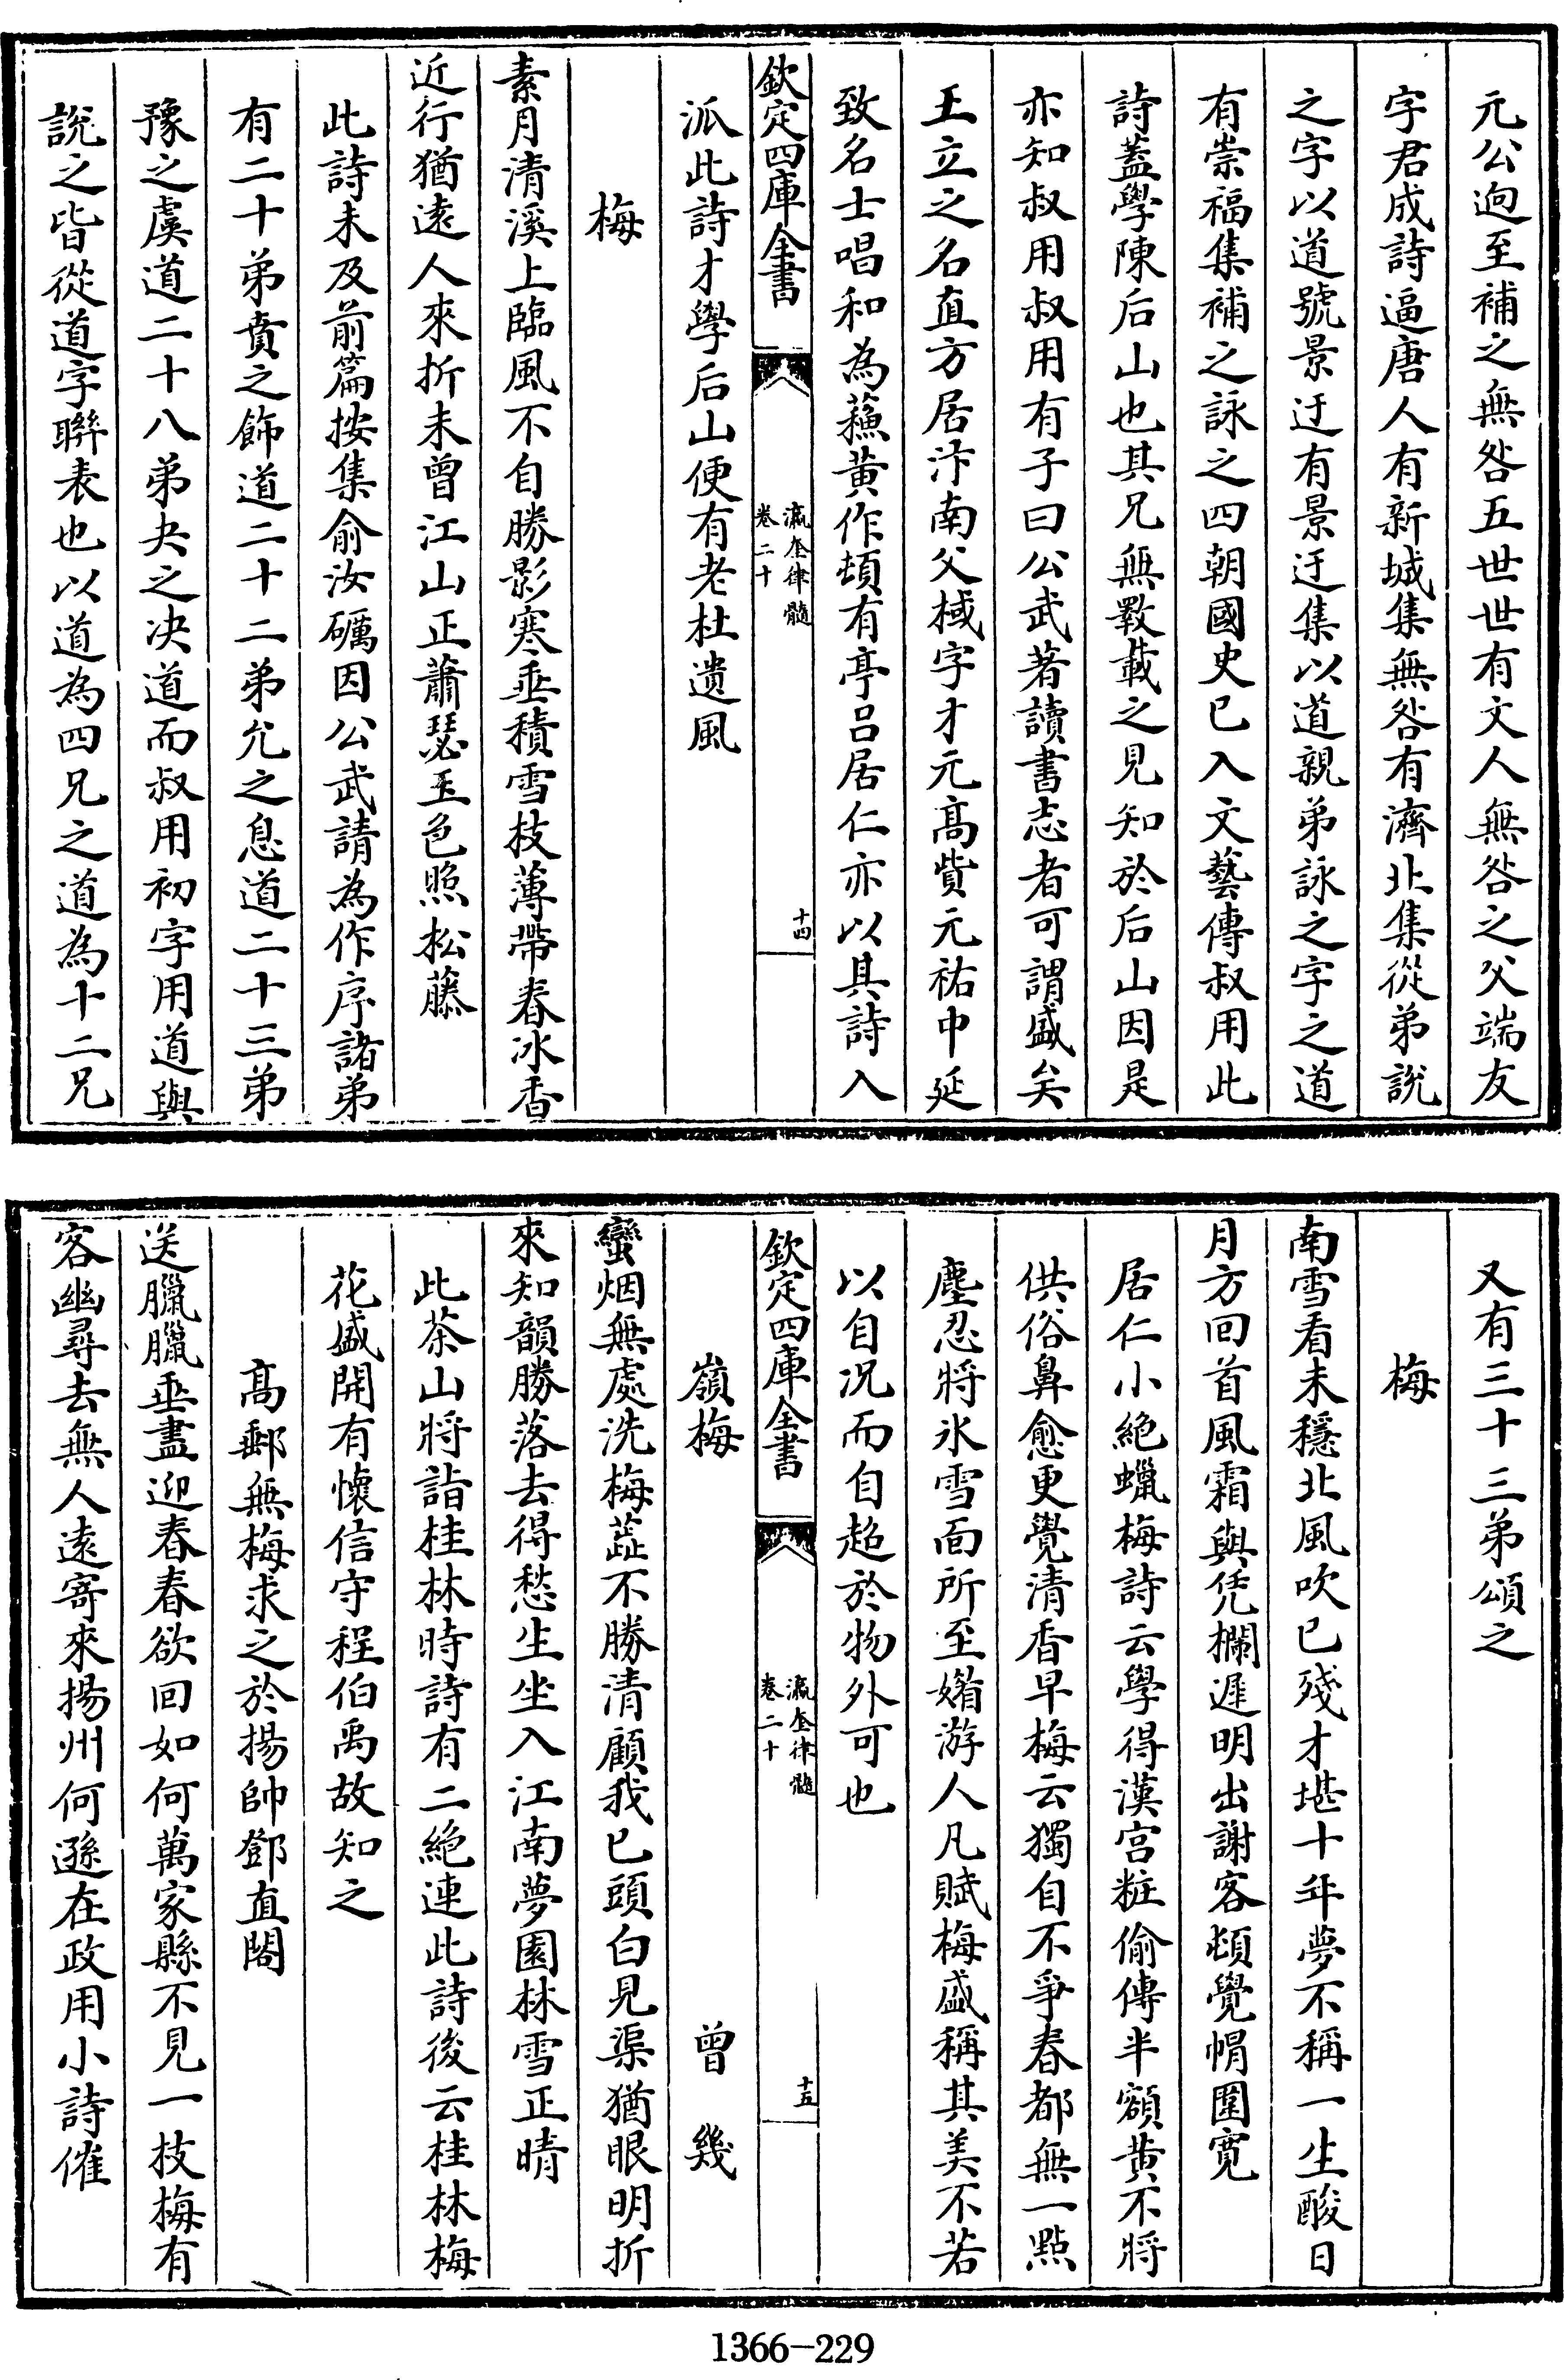 元公逈至補之無咎五世世有文人無咎之父端友
字君成詩逼唐人有新城集無咎有濟北集從弟說
之字以道號景迂有景迂集以道親弟詠之字之道
有崇福集補之詠之四朝國史已入文藝傳叔用此
詩蓋學陳后山也其兄無斁載之見知於后山因是
亦知叔用叔用有子曰公武著讀書志者可謂盛矣
王立之名直方居汴南父棫字才元高貲元祐中延
致名士唱和為蘓黃作頓有亭呂居仁亦以其詩入
欽定四庫全書
瀛奎律髓
卷二十
十四
派此詩才學后山便有老杜遺風
梅
素月清溪上臨風不自勝影寒垂積雪枝薄帶春冰香
近行猶遠人來折未曾江山正蕭瑟玉色照松藤
此詩未及前篇按集俞汝礪因公武請為作序諸弟
有二十弟賁之飾道二十二弟允之息道二十三弟
豫之虞道二十八弟夬之決道而叔用初字用道與
說之皆從道字聯表也以道為四兄之道為十二兄
又有三十三弟頌之
梅
南雪看未穩北風吹已殘才堪十年夢不稱一生酸日
月方回首風霜與凭欄遲明出謝客頓覺帽圍寬
居仁小絶蠟梅詩云學得漢宫粧偷傳半額黃不將
供俗鼻愈更覺清香早梅云獨自不爭春都無一點
塵忍將氷雪面所至媚游人凡賦梅盛稱其美不若
以自况而自超於物外可也
欽定四庫全書
瀛奎律髓
卷二十
十五
嶺梅 曾幾
蠻烟無處洗梅蘂不勝清顧我已頭白見渠猶眼明折
來知韻勝落去得愁生坐入江南夢園林雪正晴
此茶山將詣桂林時詩有二絶連此詩後云桂林梅
花盛開有懷信守程伯禹故知之
高郵無梅求之於揚帥鄧直閣
送臘臘垂盡迎春春欲回如何萬家縣不見一枝梅有
客幽尋去無人遠寄來揚州何遜在政用小詩催
1366-229